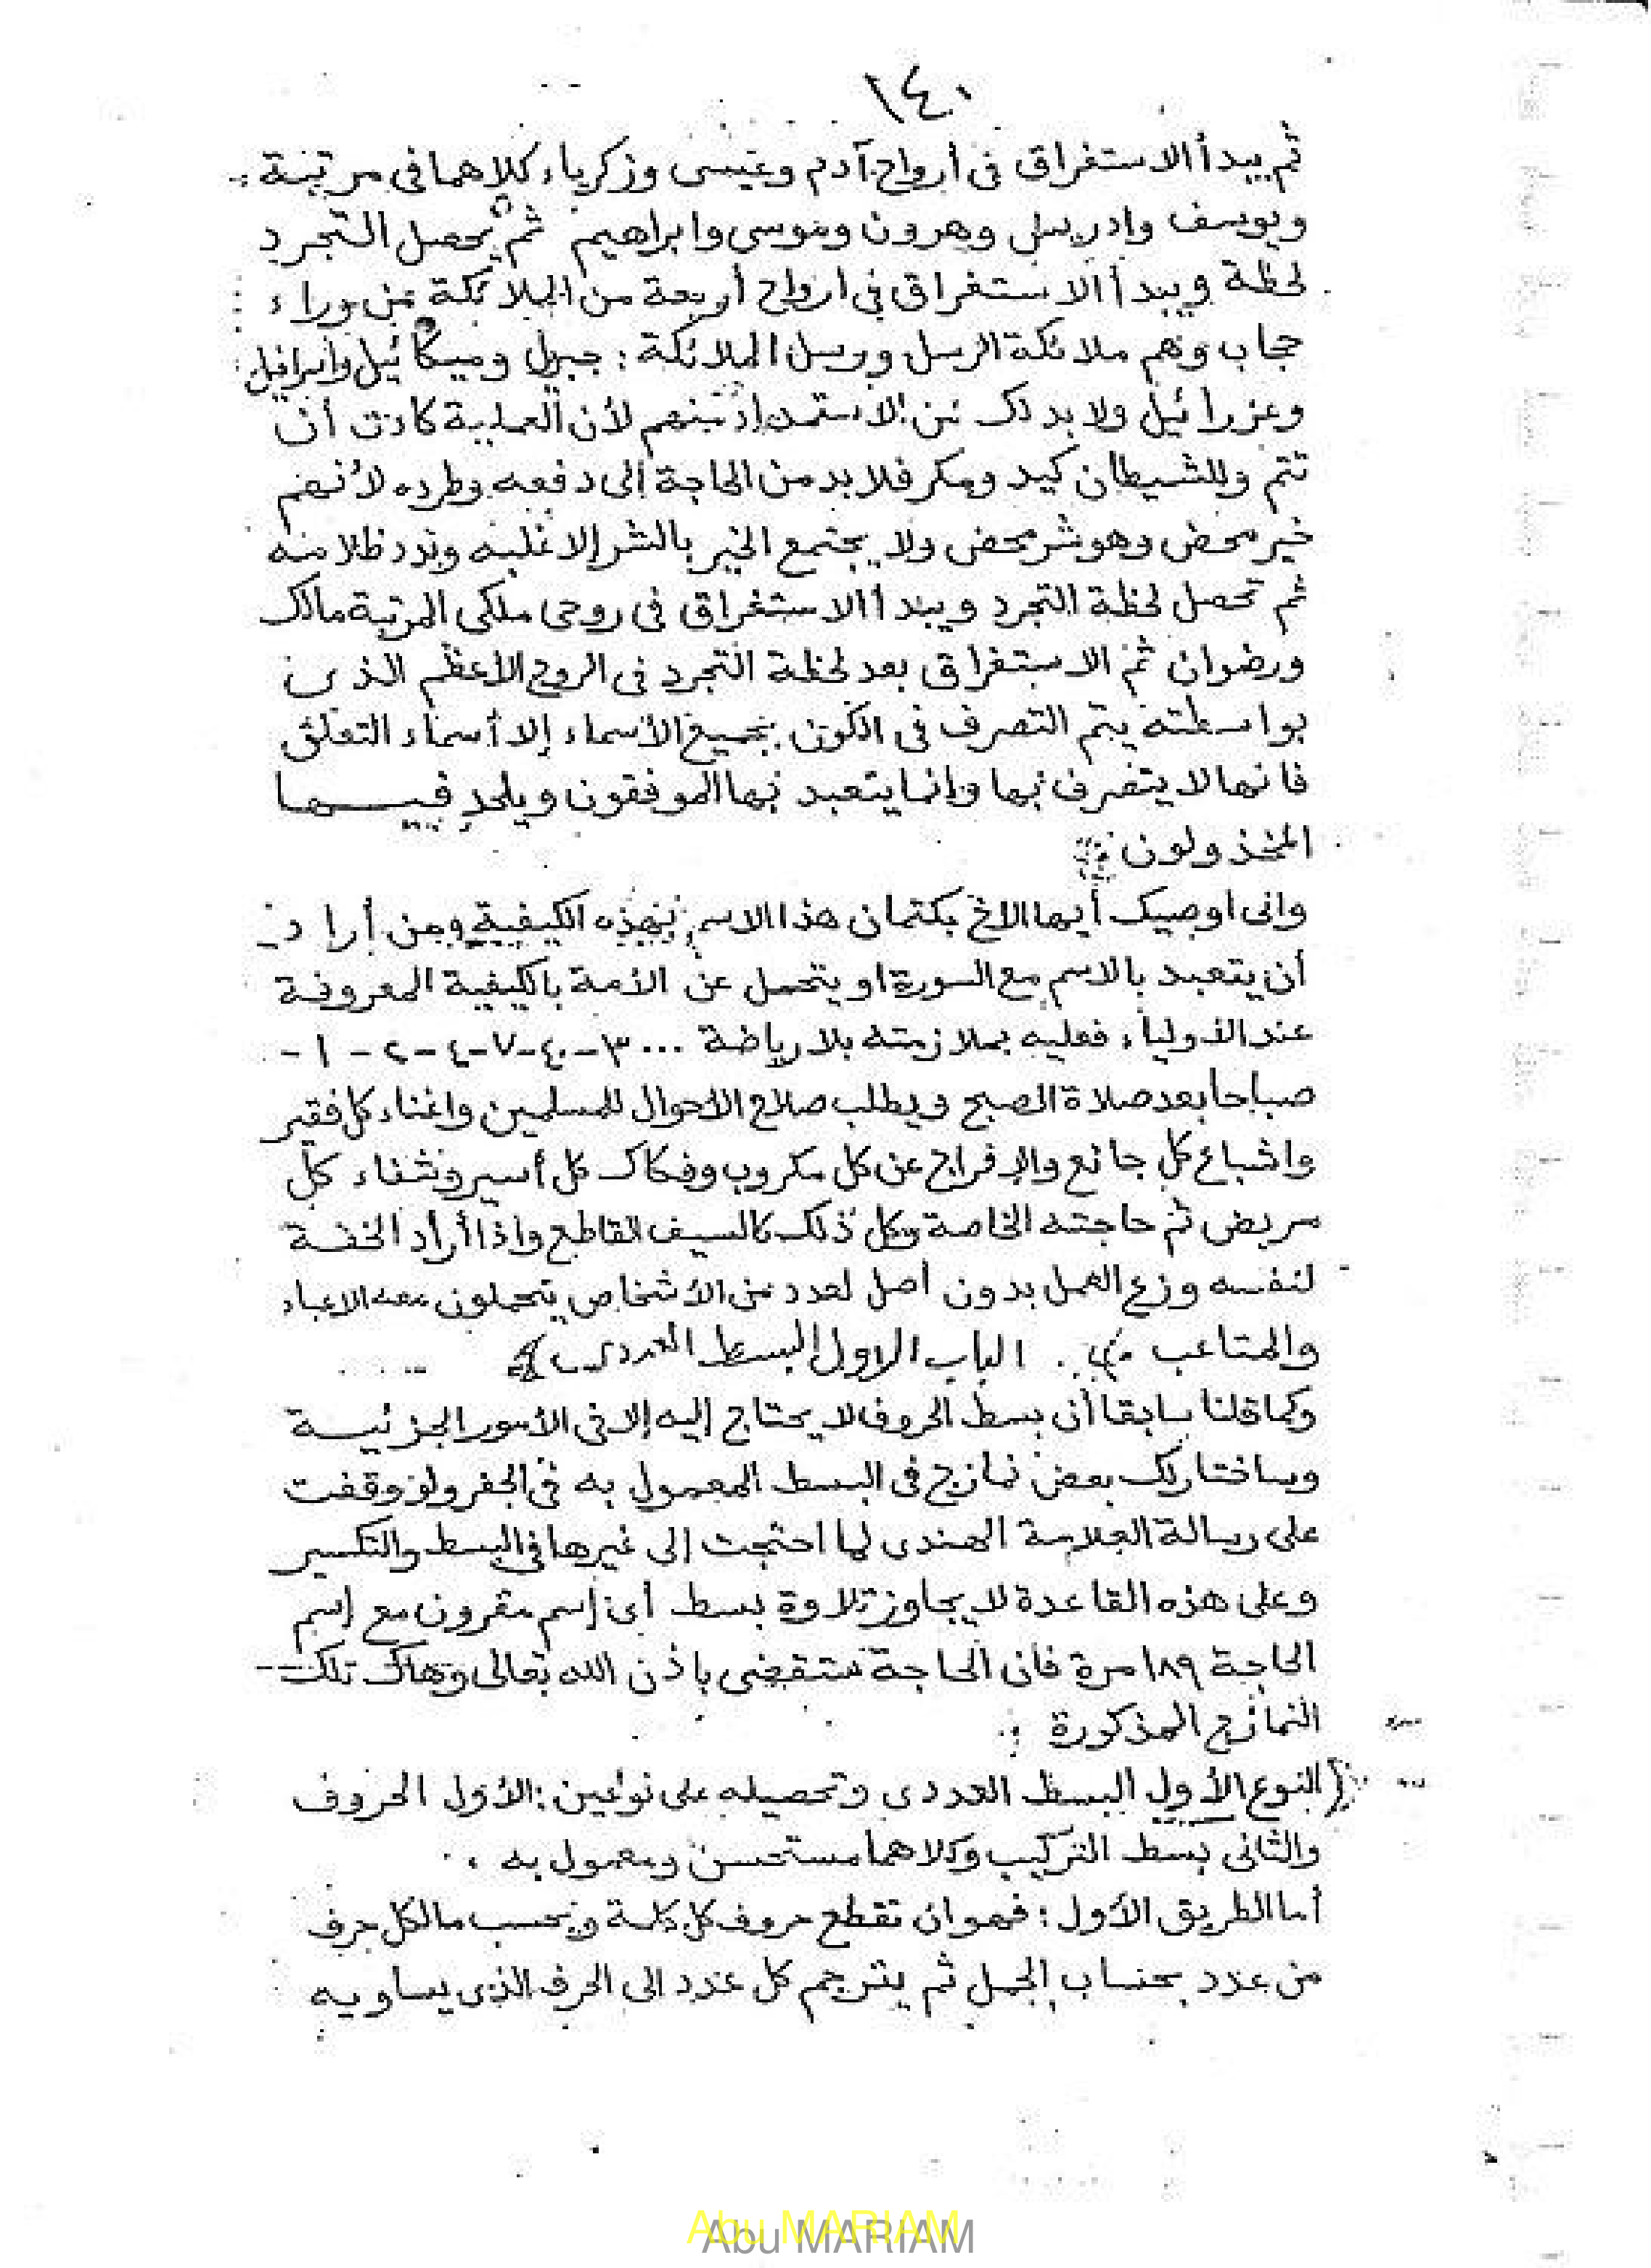 ١٤٠
ثم يبدأ الاستغراق فى أرواح آدم وعيسى وزكرياء كلاهما فى مرتبته
ويوسف وادريس وهرون وموسى وابراهيم ثم يحصل التجرد
لحظة ويبدأ الاستغراق فى ارواح أربعة من الملائكة من وراء
حجاب وهم ملائكة الرسل ورسل الملائكة : جبريل وميكائيل واسرافيل
وعزرائيل ولا بد لك من الاستمداد منهم لأن العملية كادت أن
تتم وللشيطان كيد ومكر فلا بد من الحاجة إلى دفعه وطرده لأنهم
خير محض وهو شر محض ولا يجتمع الخير بالشر إلا غلبه وبدد ظلامه
ثم تحصل لحظة التجرد ويبدأ الاستغراق فى روحى ملكى المرتبة مالك
ورضوان ثم الاستغراق بعد لحظة التجرد فى الروح الأعظم الذى
بواسطته يتم التصرف فى الكون بجميع الأسماء إلا أسماء التعلق
فانها لا يتصرف بها وإنما يتعبد بها الموفقون ويلحد فيها
المخذولون
وانى اوصيك أيها الاخ بكتمان هذا الاسم بهذه الكيفية ومن أراد
أن يتعبد بالاسم مع السورة او يتحمل عن الأمة بالكيفية المعروفة
عند الأولياء فعليه بملازمته بلا رياضة ... ٣-٤٠-٧-٤-٢-١-
صباحا بعد صلاة الصبح ويطلب صلاح الأحوال للمسلمين واغناء كل فقير
واشباع كل جائع والافراج عن كل مكروب وفكاك كل أسير وشفاء كل
مريض ثم حاجته الخاصة وكل ذلك كالسيف القاطع واذا أراد الخفة
لنفسه وزع العمل بدون أصل لعدد من الأشخاص يتحملون معه الاعباء
والمتاعب . الباب الاول البسط العددى
وكما قلنا سابقا أن بسط الحروف لا يحتاج إليه إلا فى الأمور الجزئية
وساختار لك بعض نمازج فى البسط المعمول به فى الجفر ولو وقفت
على رسالة العلامة الهندى لما احتجت إلى غيرها فى البسط والتكسير
وعلى هذه القاعدة لا يجاوز تلاوة بسط أى إسم مقرون مع إسم
الحاجة ١٨٩ مرة فان الحاجة ستقضى باذن الله تعالى وهاك تلك
النمازج المذكورة :
النوع الأول البسط العددى وتحصيله على نوعين : الأول الحروف
والثانى بسط التركيب وكلاهما مستحسن ومعمول به .
أما الطريق الأول : فهو ان تقطع حروف كل كلمة ويحسب ما لكل حرف
من عدد بحساب الجمل ثم يترجم كل عدد الى الحرف الذى يساويه
Abu MARIAM